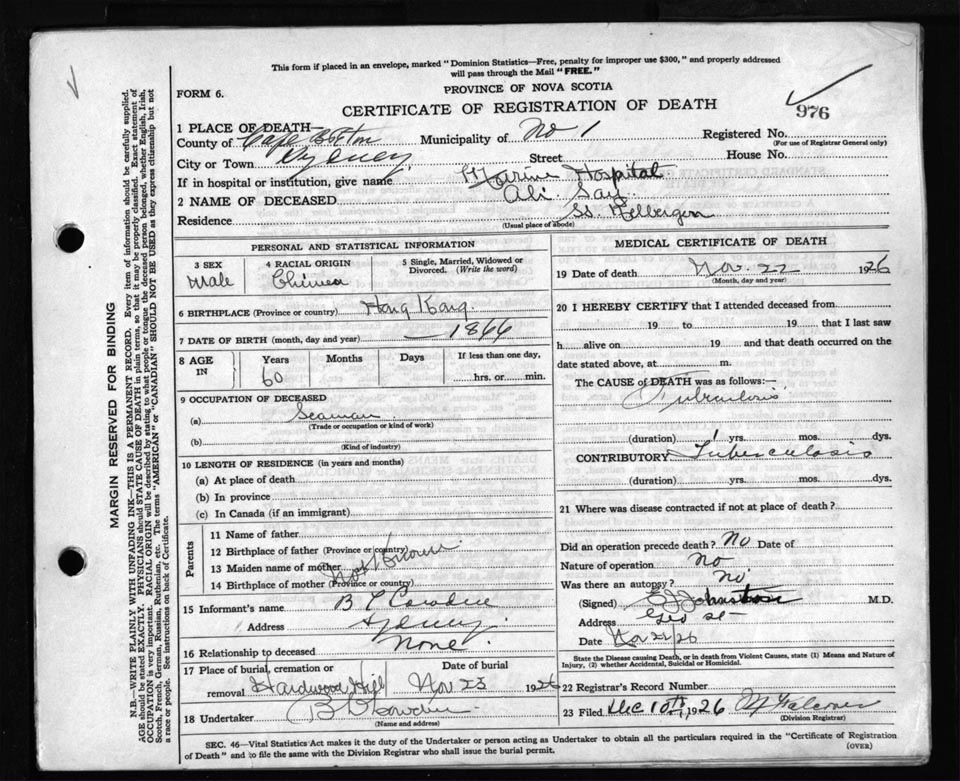 This form if placed in an envelope, marked "Dominion Statistics—Free, penalty for improper use $300," and properly addressed
will pass through the Mail "FREE."
FORM 6.
PROVINCE OF NOVA SCOTIA
CERTIFICATE OF REGISTRATION OF DEATH
976
1 PLACE OF DEATH—
County of Cape Breton Municipality of No 1 Registered No.
(For use of Registrar General only)
City or Town Sydney Street House No.
If in hospital or institution, give name Marine Hospital
2 NAME OF DECEASED Ali Say
Residence SS.
(Usual place of abode)
PERSONAL AND STATISTICAL INFORMATION
3 SEX
Male
4 RACIAL ORIGIN
5 Single, Married, Widowed or
Divorced. (Write the word)
6 BIRTHPLACE (Province or country) Hong Kong
7 DATE OF BIRTH (month, day and year) 1866
8 AGE IN
Years Months Days If less than one day,
60 hrs. or min.
9 OCCUPATION OF DECEASED
(a) Seaman
(Trade or occupation or kind of work)
(b)
(Kind of industry)
10 LENGTH OF RESIDENCE (in years and months)
(a) At place of death
(b) In province
(c) In Canada (if an immigrant)
Parents
11 Name of father
12 Birthplace of father (Province or country)
13 Maiden name of mother
14 Birthplace of mother (Province or country)
Not Known
15 Informant's name B
Address Sydney
16 Relationship to deceased None
17 Place of burial, cremation or
removal Hardwood Hill
Date of burial
Nov 23 1926
18 Undertaker B
(Name and address)
MEDICAL CERTIFICATE OF DEATH
19 Date of death Nov. 22 1926
(Month, day and year)
20 I HEREBY CERTIFY that I attended deceased from
19 to 19 that I last saw
h alive on 19 and that death occurred on the
date stated above, at m.
The CAUSE of DEATH was as follows:—
Tuberculosis
(duration) 1 yrs. mos. dys.
CONTRIBUTORY Tuberculosis
(duration) yrs. mos. dys.
21 Where was disease contracted if not at place of death?
Did an operation precede death? No Date of
Nature of operation No
Was there an autopsy? No
(Signed) Johnstone M.D.
Address Geo St
Date Nov 22/26
State the Disease causing Death, or in death from Violent Causes, state (1) Means and Nature of
Injury, (2) whether Accidental, Suicidal or Homicidal.
22 Registrar's Record Number
23 Filed Dec 10th, 1926
(Division Registrar)
SEC. 46—Vital Statistics Act makes it the duty of the Undertaker or person acting as Undertaker to obtain all the particulars required in the "Certificate of Registration
of Death" and to file the same with the Division Registrar who shall issue the burial permit.
(OVER)
MARGIN RESERVED FOR BINDING
N.B.—WRITE PLAINLY WITH UNFADING INK—THIS IS A PERMANENT RECORD. Every item of information should be carefully supplied.
AGE should be stated EXACTLY. PHYSICIANS should STATE CAUSE OF DEATH in plain terms, so that it may be properly classified. Exact statement of
OCCUPATION is very important. RACIAL ORIGIN will be described by stating to what people or tongue the deceased person belonged, whether English, Irish,
Scotch, French, German, Russian, Ruthenian, etc. The terms "AMERICAN" or "CANADIAN" SHOULD NOT BE USED as they express citizenship but not
a race or people. See instructions on back of Certificate.